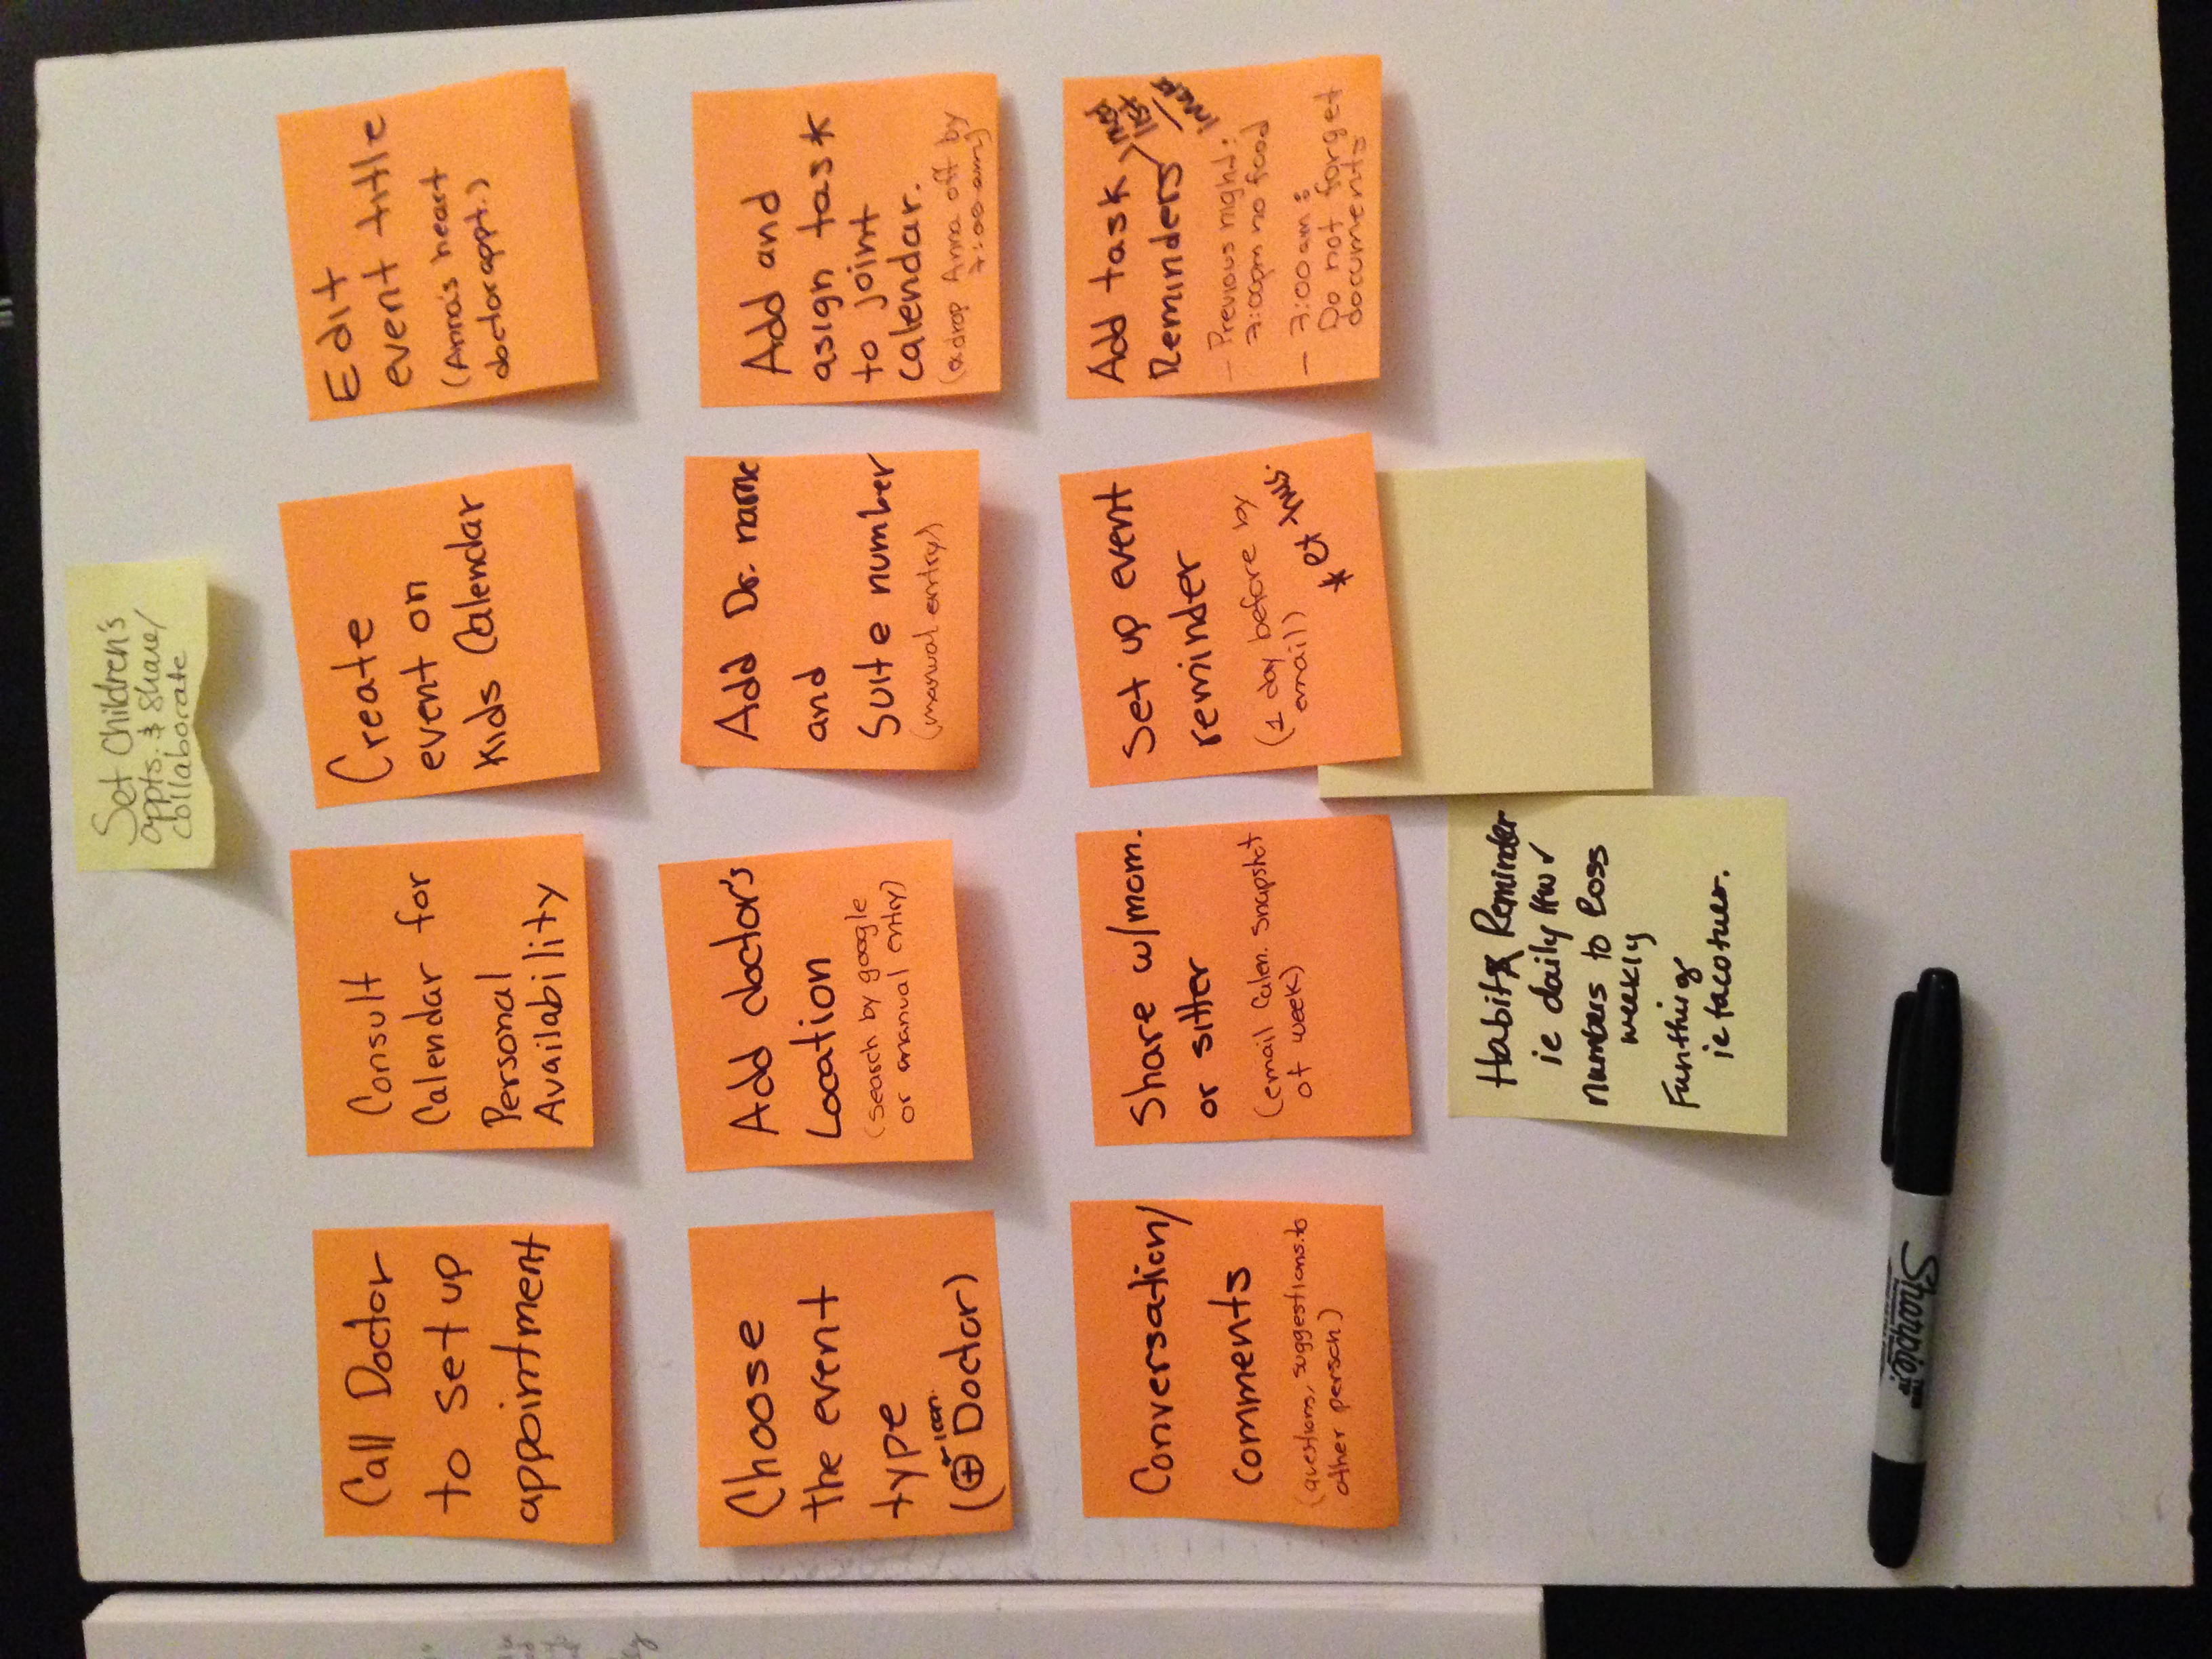 Set Children's
appts. & share/
collaborate
Call Doctor
to set up
appointment
Consult
Calendar for
Personal
Availability
Create
event on
Kids Calendar
Edit
event title
(Anna's heart
doctor appt.)
Choose
the event
type
←icon.
(⊕ Doctor)
Add doctor's
Location
(search by google
or manual entry)
Add Dr. name
and
Suite number
(manual entry)
Add and
asign task
to joint
calendar.
drop Anna off by
7:00 am)
Conversation/
comments
(questions, suggestions to
other person)
Share w/mom.
or sitter
(email Calen. Snapshot
of week)
Set up event
reminder
(1 day before by
email)
* ex hus.
Add task
Reminders
med
list
- Previous night:
7:00pm no food
- 7:00am:
Do not forget
documents
Habit Reminder
ie daily HW ✓
numbers to boss
weekly
Fun thing
ie taco tues.
Sharpie